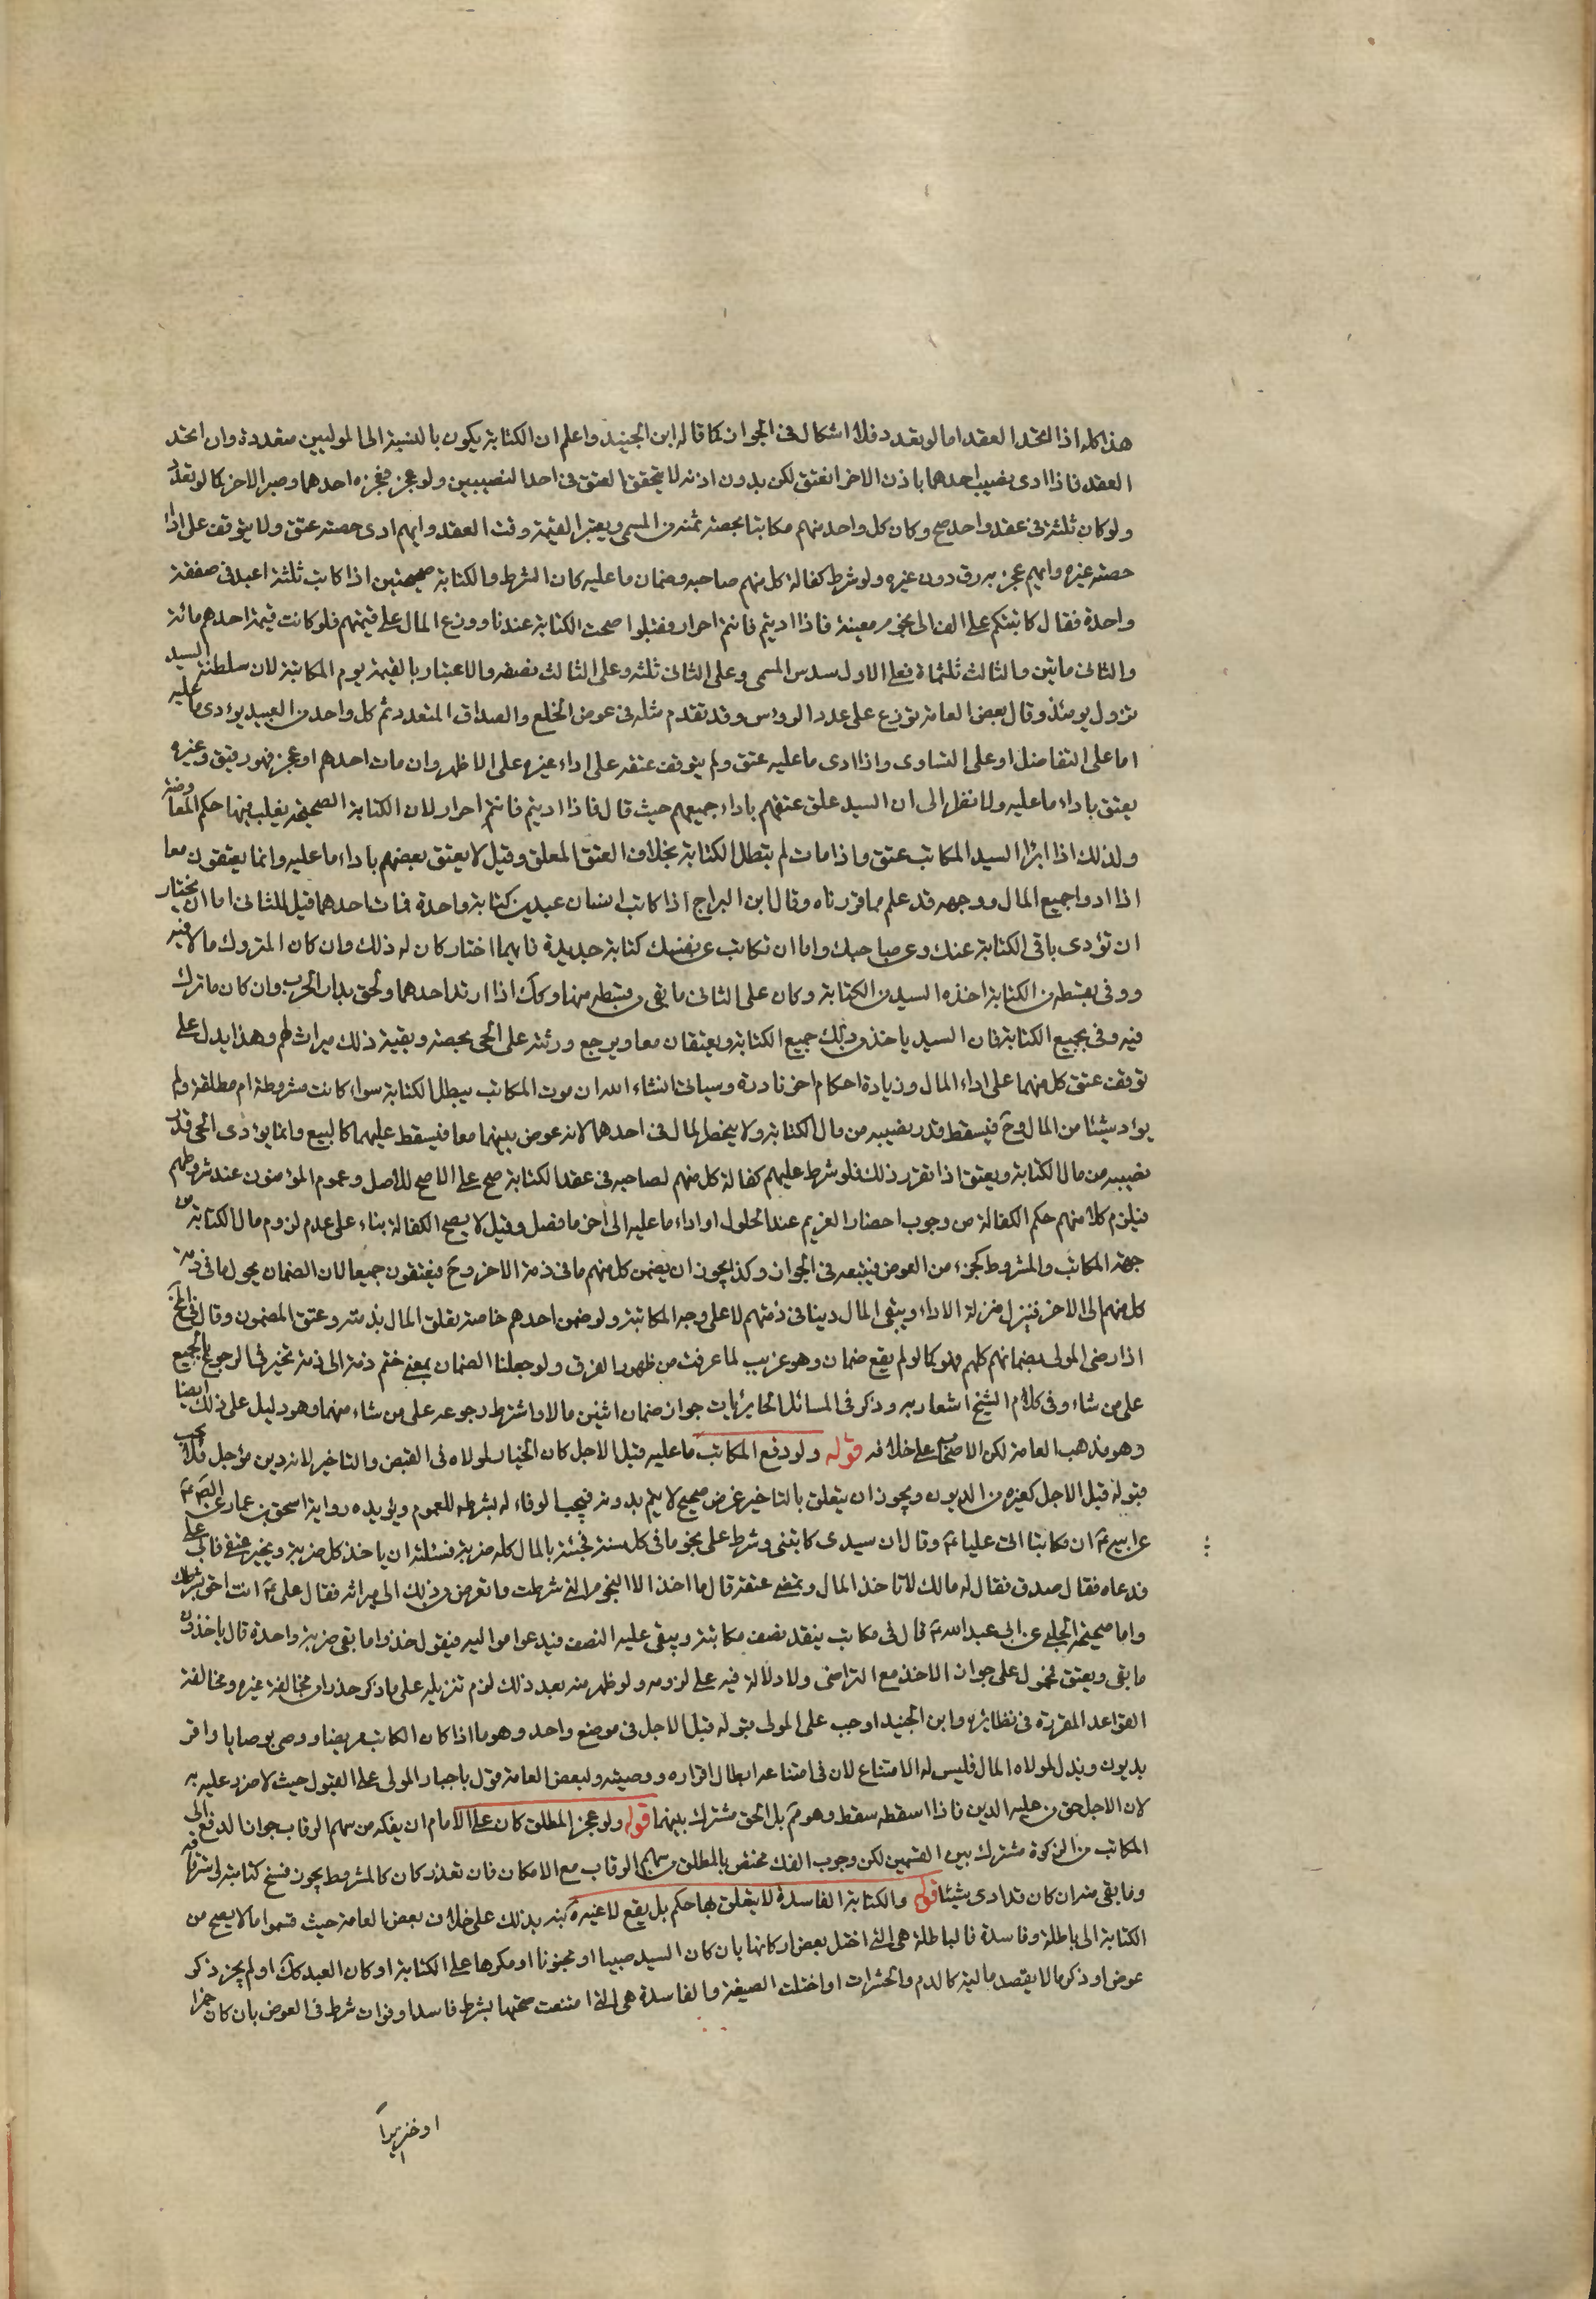 هذا كله اذا اتحد العقد اما لو تعدد فلا اشكال فى الجواز كما قاله ابن الجنيد واعلم ان الكتابة يكون بالنسبة الى الموليين متعددة وان اتحد
العقد فاذا ادى نصيب احدهما باذن الاخر انعتق لكن بدون اذنه لا يتحقق العتق فى احد النصيبين ولو عجز فعجزه احدهما وصبر الاخر كما لو تعدد
ولو كان ثلثة فى عقد واحد صح وكان كل واحد منهم مكاتبا بحصة ثمنه من المسمى ويعتبر القيمة وقت العقد وايهم ادى حصته عتق ولا يتوقف على اداء
حصته غيره وايهم عجز به رق دون غيره ولو شرط كفالة كل منهم صاحبه وضمان ما عليه كان الشرط والكتابة صحيحتين اذا كاتب ثلثة اعبد فى صفقة
واحدة فقال كاتبتكم على الف الى نجوم معينة فاذا اديتم فانتم احرار فقبلوا صحت الكتابة عندنا ووزع المال على قيمتهم فلو كانت قيمة احدهم مائة
والثانى مائتين والثالث ثلثمائة فعلى الاول سدس المسمى وعلى الثانى ثلثه وعلى الثالث نصفه والاعتبار بالقيمة يوم المكاتبة لان سلطنة السيد
تزول يومئذ وقال بعض العامة توزع على عدد الرؤس وقد تقدم مثله فى عوض الخلع والصداق المتعدد ثم كل واحد من العبيد يؤدى ما عليه
اما على التفاضل او على التساوى واذا ادى ما عليه عتق ولم يتوقف عتقه على اداء غيره على الاظهر وان مات احدهم او عجز فهو رقيق وغيره
يعتق باداء ما عليه ولا نظر الى ان السيد علق عتقهم باداء جميعهم حيث قال فاذا اديتم فانتم احرار لان الكتابة الصحيحة يغلب فيها حكم المعاوضة
ولذلك اذا ابرأ السيد المكاتب عتق واذا مات لم تبطل الكتابة بخلاف العتق المعلق وقيل لا يعتق بعضهم باداء ما عليه وانما يعتقون معا
اذا ادوا جميع المال ووجهه قد علم مما قررناه وقال ابن البراج اذا كاتب انسان عبدين كتابة واحدة فمات احدهما قيل للثانى اما ان يختار
ان تؤدى باقى الكتابة عنك وعن صاحبك واما ان تكاتب عن نفسك كتابة جديدة فايهما اختار كان له ذلك وان كان المتروك مالا فيه
ووفى بقسطه من الكتابة اخذه السيد من الكتابة وكان على الثانى ما بقى من قسطه منها وكك اذا ارتد احدهما ولحق بدار الحرب وان كان ما ترك
فيه وفى بجميع الكتابة فان السيد ياخذ من ذلك جميع الكتابة ويعتقان معا ويرجع ورثته على الحى بحصته وبقية ذلك ميراث لهم وهذا يدل على
توقف عتق كل منهما على اداء المال وزيادة احكام اخر نادرة وسياتى انشاء الله ان موت المكاتب يبطل الكتابة سواء كانت مشروطة ام مطلقة ولم
يؤد شيئا من المال وح فيسقط قدر نصيبه من مال الكتابة ولا ينحصر المال فى احدهما لانه عوض بينهما معا فيسقط عليهما كالبيع وانما يؤدى الحى قدر
نصيبه من مال الكتابة ويعتق اذا تقرر ذلك فلو شرط عليهم كفالة كل منهم لصاحبه فى عقد الكتابة صح على الاصح للاصل وعموم المؤمنون عند شروطهم
فيلزم كلا منهم حكم الكفالة من وجوب احضار الغريم عند الحلول او اداء ما عليه الى اخر ما فصل وقيل لا يصح الكفالة بناء على عدم لزوم مال الكتابة من
جهة المكاتب والمشروط كجزء من العوض فيتبعه فى الجواز وكذا يجوز ان يضمن كل منهم ما فى ذمة الاخر وح فيعتقون جميعا لان الضمان يحول ما فى ذمة
كل منهم الى الاخر فينزل منزلة الاداء ويبقى المال دينا فى ذمتهم لا على وجه المكاتبة ولو ضمن احدهم خاصة تعلق المال بذمته وعتق المضمون وقال فى
اذا رضى المولى بضمانهم كلهم فهو كما لو لم يقع ضمان وهو غريب لما عرفت من ظهور الفرق ولو جعلنا الضمان بمعنى ضم ذمة الى ذمة تخير فى الرجوع بالجميع
على من شاء وفى كلام الشيخ اشعار به وذكر فى المسائل الحايريات جواز ضمان اثنين مالا واشترط رجوعه على من شاء منهما وهو دليل على ذلك ايضا
وهو مذهب العامة لكن الاصحاب على خلافه قوله ولو دفع المكاتب ما عليه قبل الاجل كان الخيار لمولاه فى القبض والتاخير لانه دين مؤجل فلا يجب
قبوله قبل الاجل كغيره من الديون ويجوز ان يتعلق بالتاخير غرض صحيح لا يتم بدونه فيجب الوفاء له بشرطه للعموم ويؤيده رواية اسحق بن عمار عن الصع
عن ابيه ع ان مكاتبا اتى عليا ع وقال ان سيدى كاتبنى وشرط على نجوما فى كل سنة فجئته بالمال كله ضربة فسئلته ان ياخذ كل ضربة ويجيز عتقى فابى على
فدعاه فقال صدق فقال له مالك لا تاخذ المال وتمضى عتقه قال ما اخذ الا النجوم التى شرطت واتعرض من ذلك الى ميراثه فقال على ع انت احق بشرطك
واما صحيحة الحلبى عن ابى عبد الله ع قال فى مكاتب ينقد نصف مكاتبته ويبقى عليه النصف فيدعوا مواليه فيقول خذوا ما بقى ضربة واحدة قال ياخذون
ما بقى ويعتق فمحمول على جواز الاخذ مع التراضى ولا دلالة فيه على لزومه ولو ظهر منه بعد ذلك لزم تنزيله على ما ذكر حذرا من مخالفة غيره ومخالفة
القواعد المقررة فى نظائره وابن الجنيد اوجب على المولى قبوله قبل الاجل فى موضع واحد وهو ما اذا كان الكاتب مريضا ووصى بوصايا واقر
بديون وبذل لمولاه المال فليس له الامتناع لان فى امتناعه ابطال اقراره ووصيته ولبعض العامة قول باجبار المولى على القبول حيث لا ضرر عليه به
لان الاجل حق من عليه الدين فاذا اسقطه سقط وهو مم بل الحق مشترك بينهما قوله ولو عجز المطلق كان على الامام ان يفكه من سهم الرقاب جواز الدفع الى
المكاتب من الزكوة مشترك بين القسمين لكن وجوب الفك مختص بالمطلق من سهم الرقاب مع الامكان فان تعذر كان كالمشروط يجوز فسخ كتابته
وما بقى منه ان كان قد ادى شيئا قوله والكتابة الفاسدة لا يتعلق بها حكم بل يقع لاغية نبه بذلك على خلاف بعض العامة حيث قسموا ما لا يصح من
الكتابة الى باطلة وفاسدة فالباطلة هى التى اختل بعض اركانها بان كان السيد صبيا او مجنونا او مكرها على الكتابة او كان العبد كك او لم يجز ذكر
عوض او ذكر ما لا يقصد مالية كالدم والحشرات او اختلت الصيغة والفاسدة هى التى امتنعت صحتها بشرط فاسد او فوات شرط فى العوض بان كان خمرا
او خنزيرا